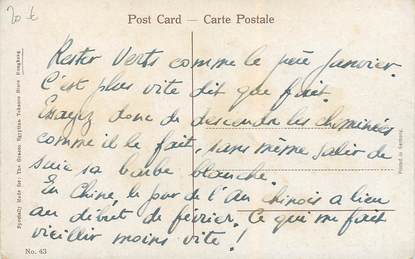 20 €
Post Card — Carte Postale
Rester Verts comme le père Janvier.
C'est plus vite dit que fait.
Essayez donc de descendre les cheminées
comme il le fait, sans même salir de
suie sa barbe blanche.
En Chine, le jour de l'An chinois a lieu
au début de février. Ce qui me fait
vieillir moins vite!
No. 43
Specially Made for: The Graeco Egyptian Tobacco Store Hongkong
Printed in Germany.